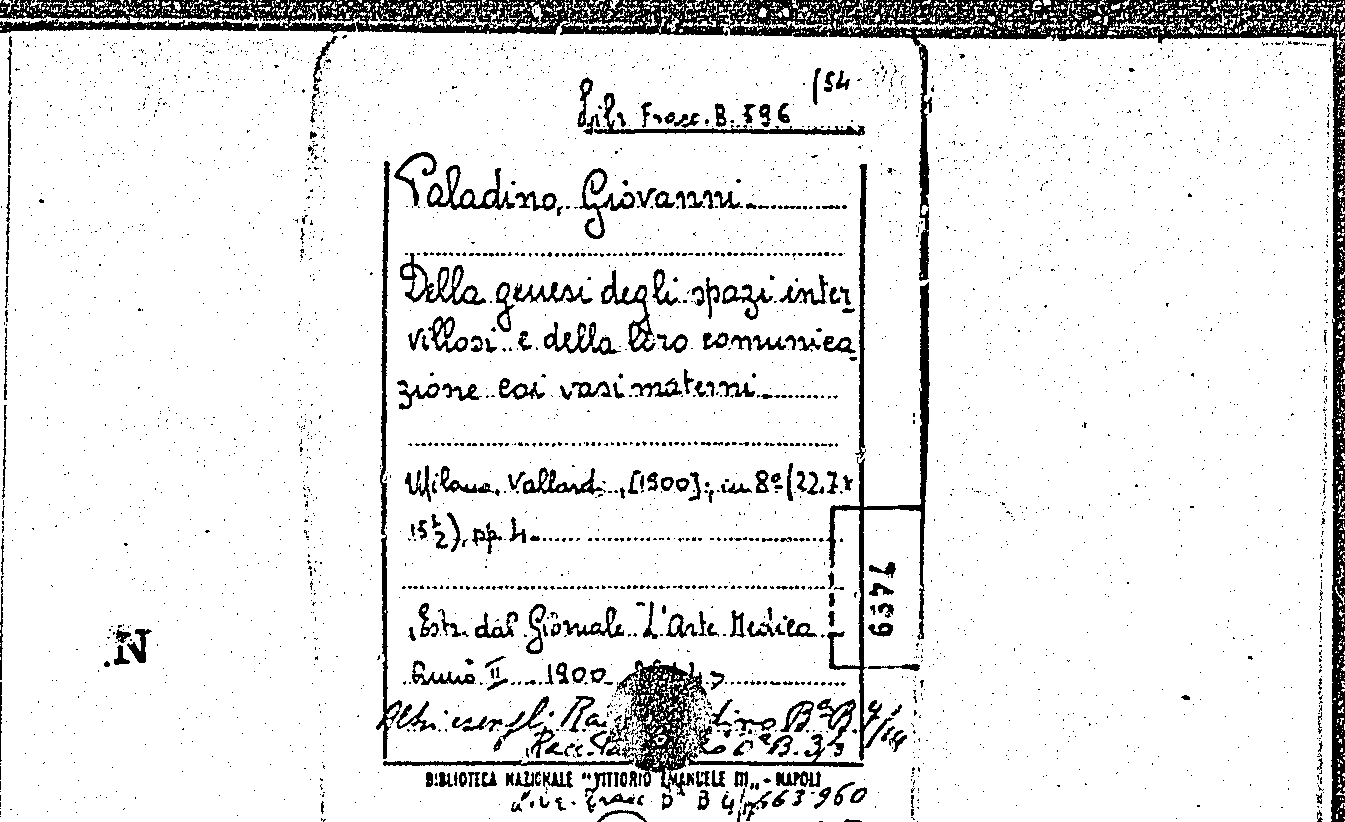 (54
Libr Fracc. B. 596
Paladino, Giovanni
Della genesi degli spazi inter
villosi e della loro comunica
zione coi vasi materni
Milano, Vallardi, [1900]; in 8º (22,7x
15½), pp. 4
Estr. dal Giornale "L'Arte Medica
Anno II 1900
7459
N.
Altri esempl. B.ª B. 4/
B. 3/3
BIBLIOTECA NAZIONALE "VITTORIO EMANUELE III" - NAPOLI
B 4/ 663960